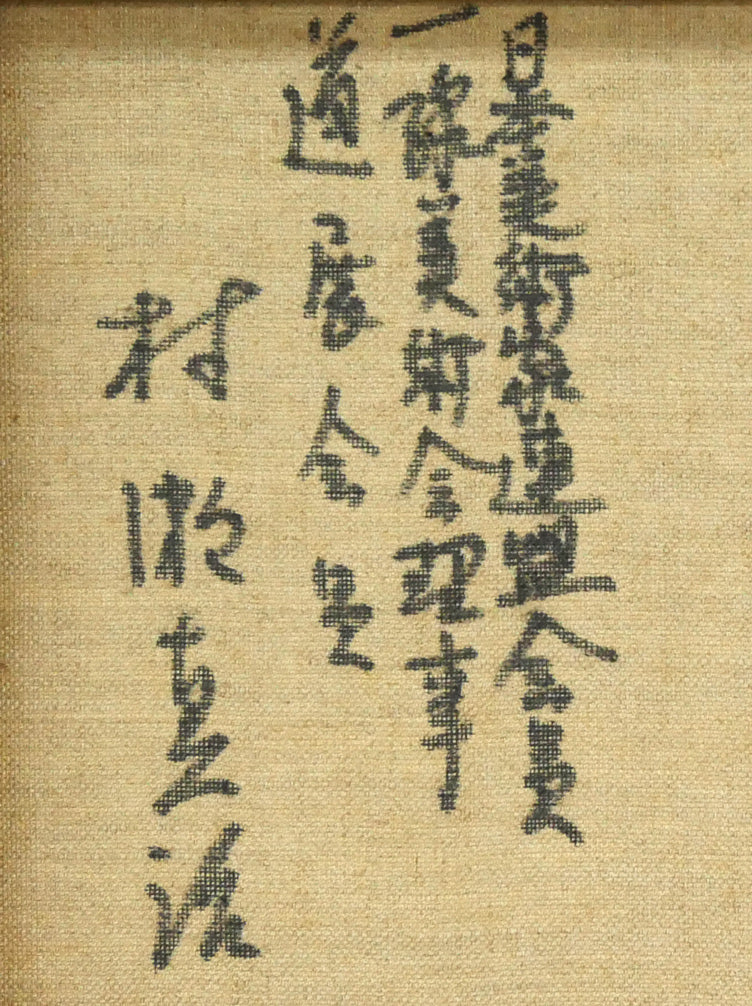 日本美術家連盟会員
一線美術会理事
道展会員
村瀬真治